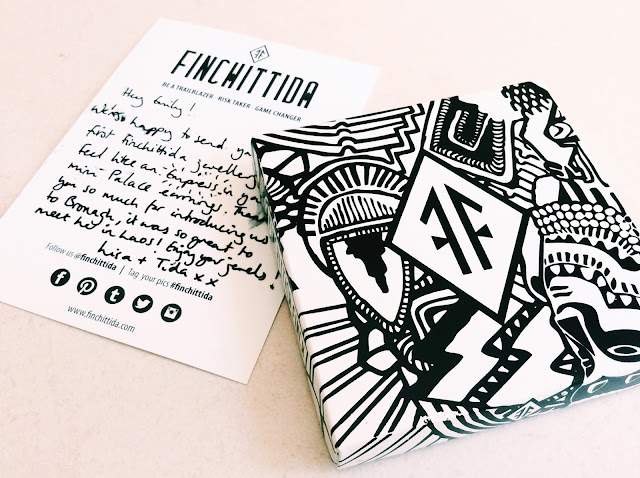 FINCHITTIDA
BE A TRAILBLAZER · RISK TAKER · GAME CHANGER
Hey Emily!
We're so happy to send you
first Finchittida jewellery
Feel like an Empress in your
mini-Palace earrings. Thank
you so much for introducing us
to Bronagh, it was so great to
meet her in Laos! Enjoy your jewels!
Lisa + Tida x x
Follow us @finchittida | Tag your pics #finchittida
www.finchittida.com